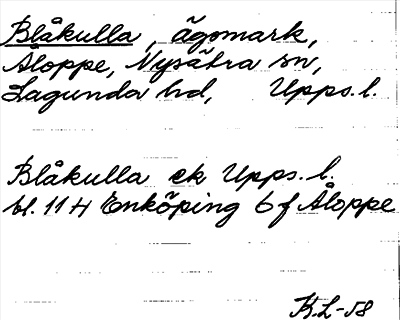 Blåkulla, ägomark,
Åloppe, Nysätra sn,
Lagunda hd, Upps.l.
Blåkulla ek Upps.l.
bl. 11 H Enköping 6 f Åloppe
K.L-58